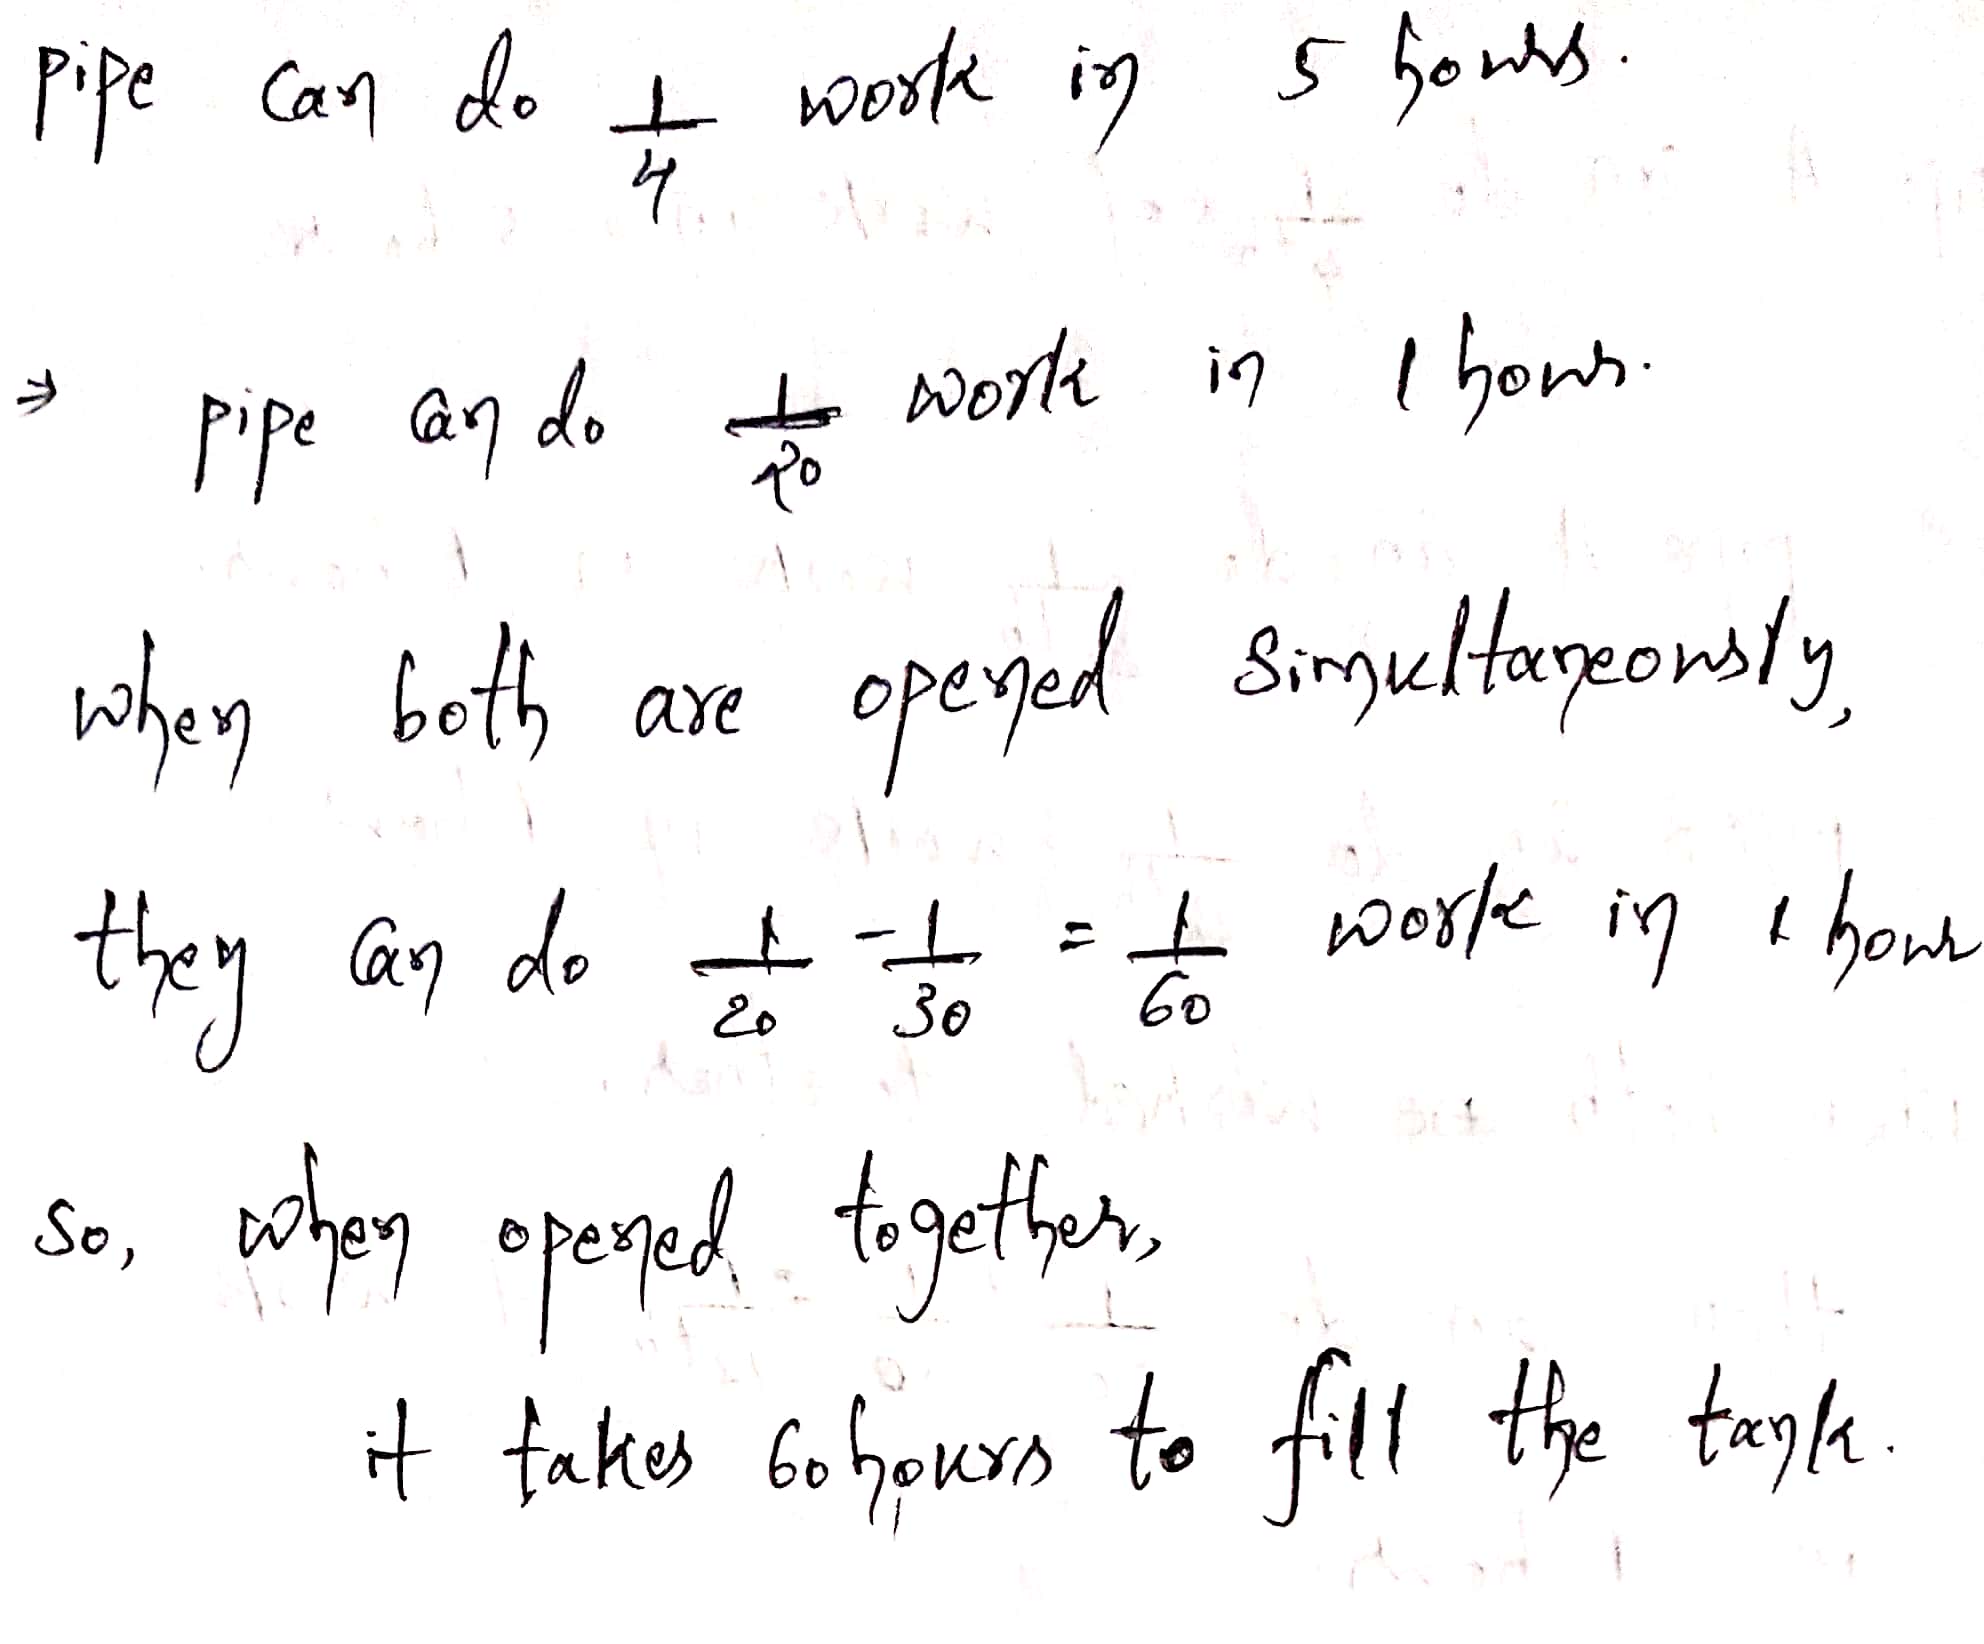 pipe can do 1/4 work in 5 hours.
⇒ pipe can do 1/20 work in 1 hour.
when both are opened simultaneously,
they can do 1/20 - 1/30 = 1/60 work in 1 hour
so, when opened together,
it takes 60 hours to fill the tank.